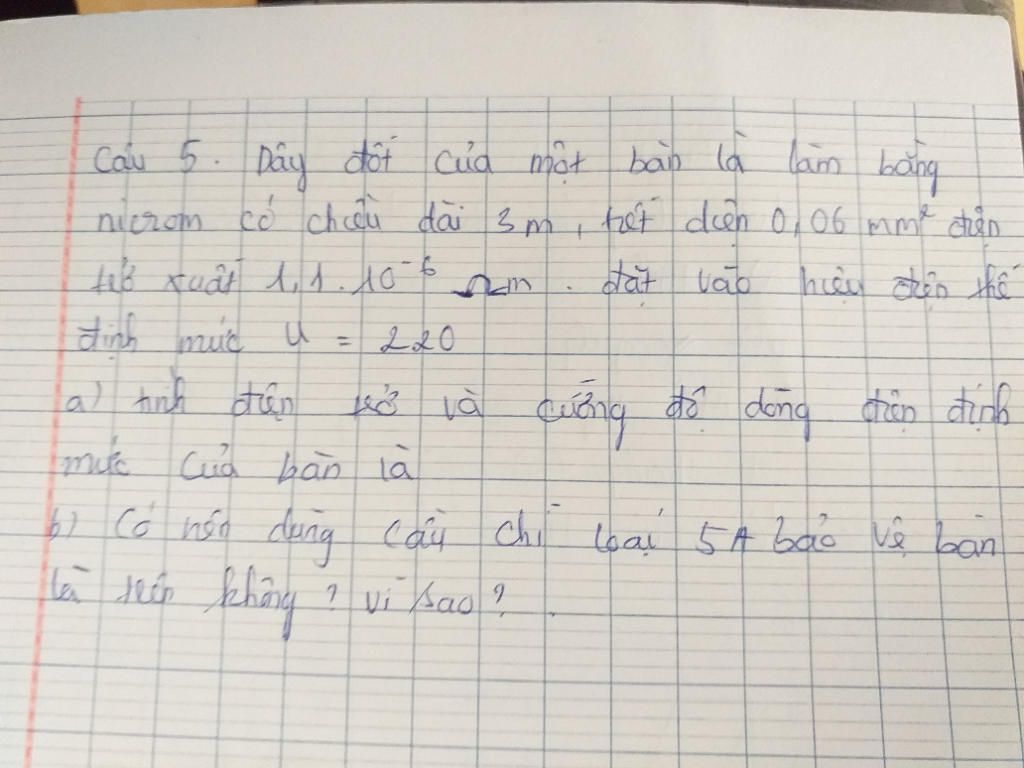 Câu 5. Dây đốt của một bàn là làm bằng
nicrom có chiều dài 3m, tiết diện 0,06 mm² điện
trở xuất 1,1.10⁻⁶ Ωm. đặt vào hiệu điện thế
định mức U = 220
a) tính điện trở và cường độ dòng điện định
mức của bàn là
b) Có nên dùng cầu chì loại 5A bảo vệ bàn
là trên không? vì sao?